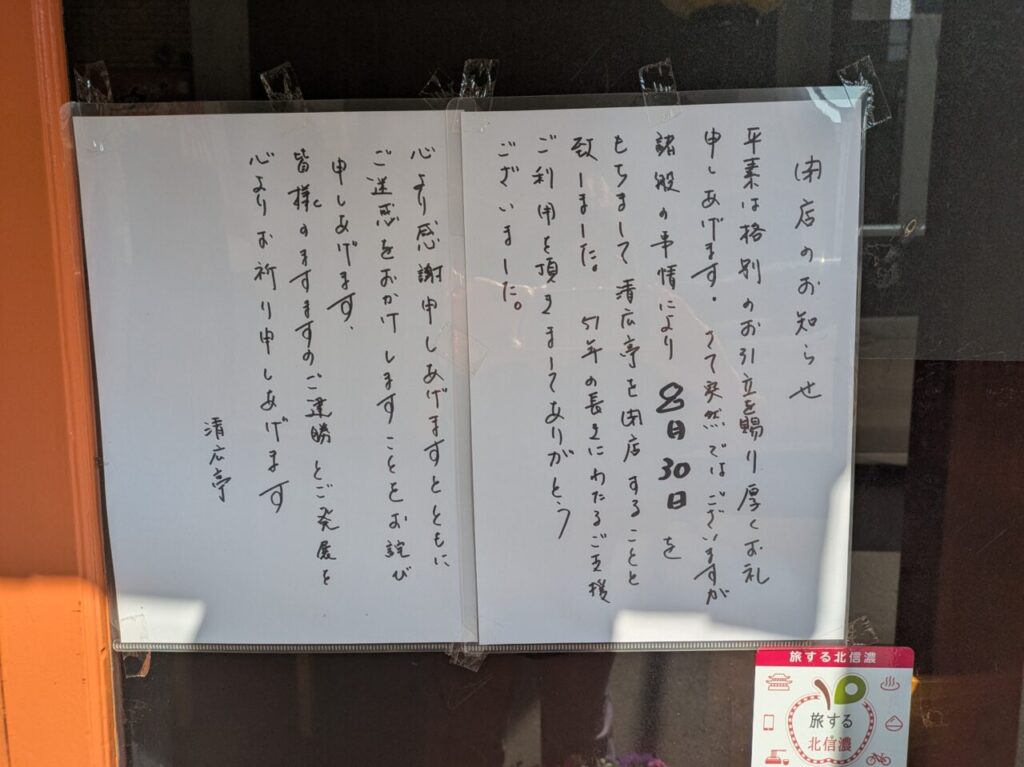 閉店のお知らせ
平素は格別のお引立を賜り厚くお礼
申しあげます。さて突然ではございますが
諸般の事情により 8月30日を
もちまして清広亭を閉店することと
致しました。51年の長きにわたるご支援
ご利用を頂きましてありがとう
ございました。
心より感謝申しあげますとともに
ご迷惑をおかけしますことをお詫び
申しあげます。
皆様のますますのご健勝とご発展を
心よりお祈り申しあげます
清広亭
旅する北信濃
旅する
北信濃